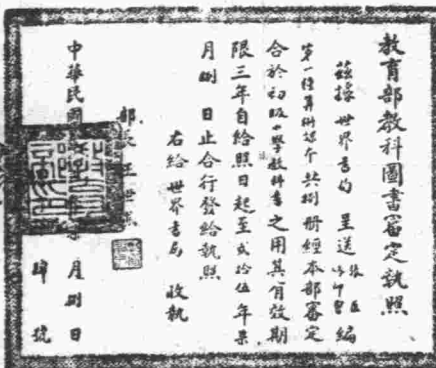 教育部教科圖書審定執照
茲據 世界書局 呈送 編
第一種算術課本 共捌冊經本部審定
合於初級小學教科書之用其有效期
限三年自給照日起至貳拾伍年
月捌 日止合行發給執照
右給 世界書局 收執
部長 王世
中華民國 月捌日
號